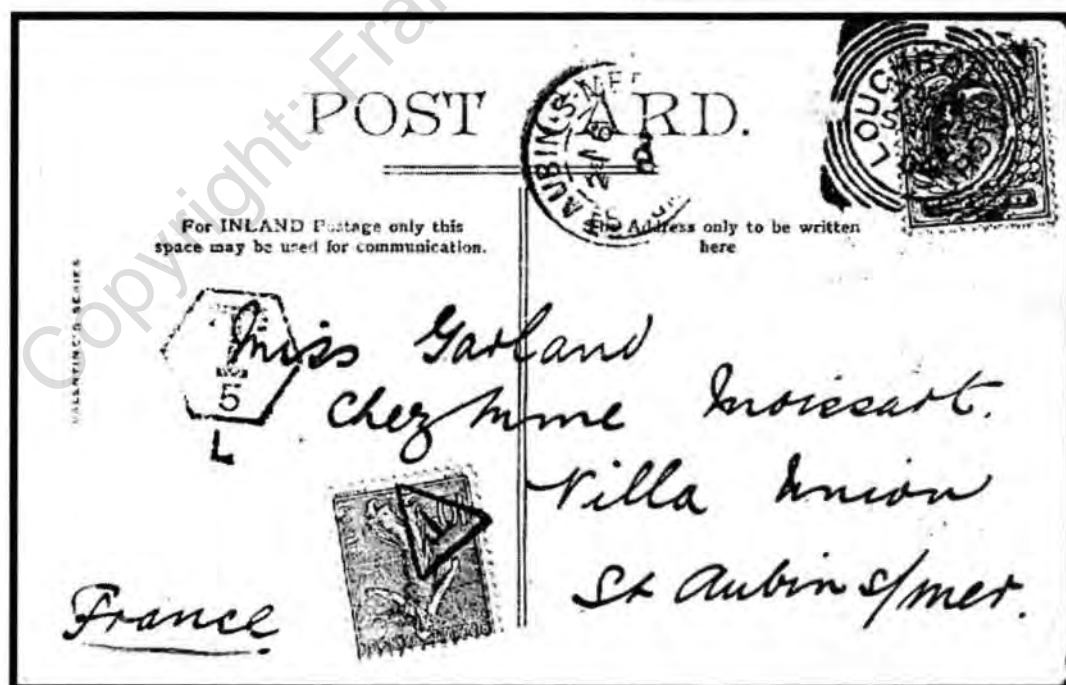 POST CARD.
AUBIN-S-MER
LOUGHBOR
For INLAND Postage only this
space may be used for communication.
The Address only to be written
here
VALENTINE'S SERIES
5
L
Miss Garland
Chez Mme Moissart.
Villa Union
St Aubin s/mer.
France
Copyright: Fran